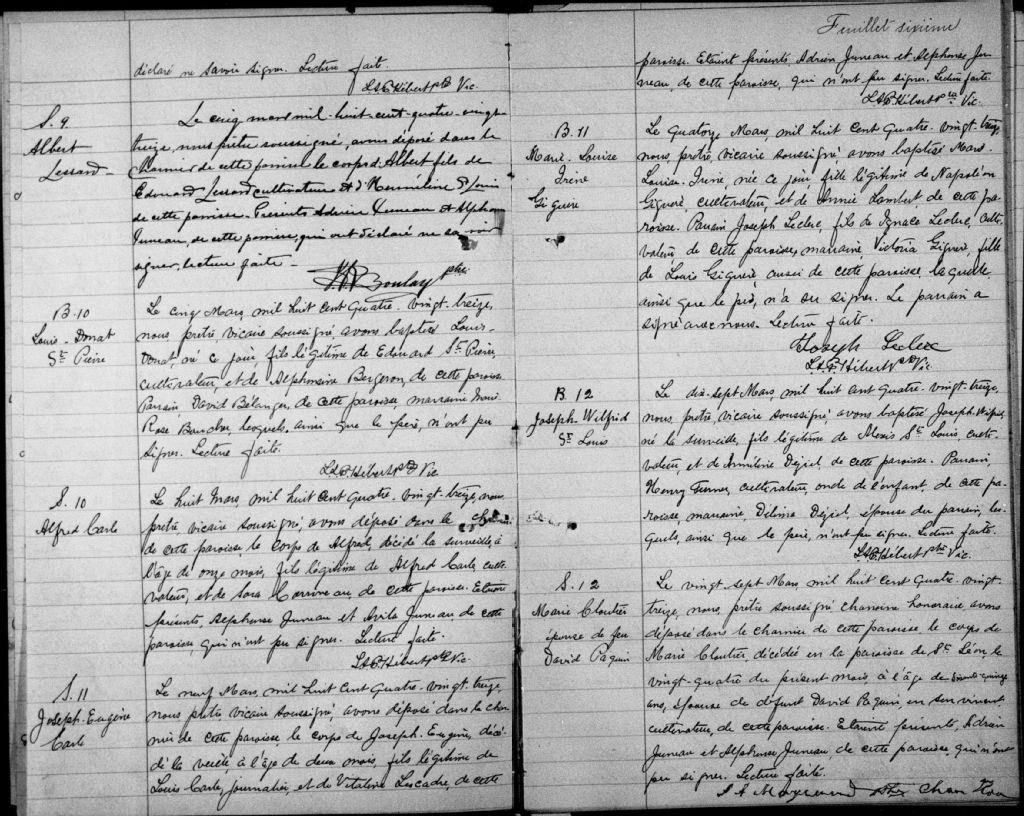 déclaré ne savoir signer. Lecture faite.
Hébert ptre Vic.
S. 9
Albert
Lessard
Le cinq mars mil-huit-cent-quatre-vingt-
treize, nous prêtre soussigné, avons déposé dans le
charnier de cette paroisse le corps d'Albert fils de
Edouard Lessard cultivateur et d'Herméline St Louis
de cette paroisse. Présents Adrien Juneau et Alphonse
Juneau, de cette paroisse, qui ont déclaré ne savoir
signer, lecture faite —
Boulay ptre
B. 10
Louis-Donat
St Pierre
Le cinq Mars, mil huit cent quatre-vingt-treize,
nous prêtre, vicaire soussigné, avons baptisé Louis-
Donat, né ce jour, fils légitime de Edouard St Pierre,
cultivateur, et de Alphonsine Bergeron, de cette paroisse.
Parrain David Bélanger, de cette paroisse marraine
Rose, lesquels, ainsi que le père, n'ont pu
signer. Lecture faite.
Hébert ptre Vic
S. 10
Alfred Carle
Le huit Mars, mil huit cent quatre-vingt-treize, nous
prêtre, vicaire soussigné, avons déposé dans le
de cette paroisse le corps de Alfred, décédé la surveille, à
l'âge de onze mois, fils légitime de Alfred Carle, culti-
vateur, et de de cette paroisse. Etaient
présents, Alphonse Juneau et Avila Juneau, de cette
paroisse, qui n'ont pu signer. Lecture faite.
Hébert ptre Vic.
S. 11
Joseph-Eugène
Carle
Le neuf Mars, mil huit cent quatre-vingt-treize,
nous prêtre vicaire soussigné, avons déposé dans le char-
nier de cette paroisse, le corps de Joseph-Eugène, décé-
dé la veille, à l'âge de deux mois, fils légitime de
Louis Carle, journalier, et de Vitaline Lescadre, de cette
Feuillet sixième
paroisse. Etaient présents Adrien Juneau et Alphonse Ju-
neau de cette paroisse, qui n'ont pu signer. Lecture faite.
Hébert ptre Vic.
B. 11
Marie-Louise
Irène
Giguère
Le Quatorze Mars mil huit cent quatre-vingt-treize,
nous, prêtre, vicaire soussigné avons baptisé Marie-
Louise-Irène, née ce jour, fille légitime de Napoléon
Giguère cultivateur, et de Annie Lambert de cette pa-
roisse. Parrain Joseph Leclerc, fils de Ignace Leclerc, culti-
vateur de cette paroisse, marraine, Victoria Giguère, fille
de Louis Giguère, aussi de cette paroisse, laquelle
ainsi que le père, n'a su signer. Le parrain a
signé avec nous. Lecture faite.
Joseph Leclerc
Hébert ptre Vic
B. 12
Joseph-Wilfrid
St Louis
Le dix-sept Mars mil huit cent quatre-vingt-treize,
nous, prêtre, vicaire soussigné, avons baptisé Joseph-Wilfrid,
né la surveille, fils légitime de Alexis St Louis, culti-
vateur, et de Arméline Déziel, de cette paroisse. Parrain,
Henry, cultivateur, oncle de l'enfant, de cette pa-
roisse, marraine Délvina Déziel, épouse du parrain, les-
quels, ainsi que le père, n'ont pu signer. Lecture faite.
Hébert ptre Vic.
S. 12
Marie Cloutier
épouse de feu
David Paquin
Le vingt-sept Mars, mil huit cent quatre-vingt-
treize, nous, prêtre soussigné chanoine honoraire, avons
déposé dans le charnier de cette paroisse, le corps de
Marie Cloutier, décédée en la paroisse de St Léon le
vingt-quatre du présent mois, à l'âge de soixante-quinze
ans, épouse de défunt David Paquin en son vivant
cultivateur, de cette paroisse. Etaient présents, Adrien
Juneau et Alphonse Juneau, de cette paroisse, qui n'ont
pu signer. Lecture faite.
ptre Chan Hon